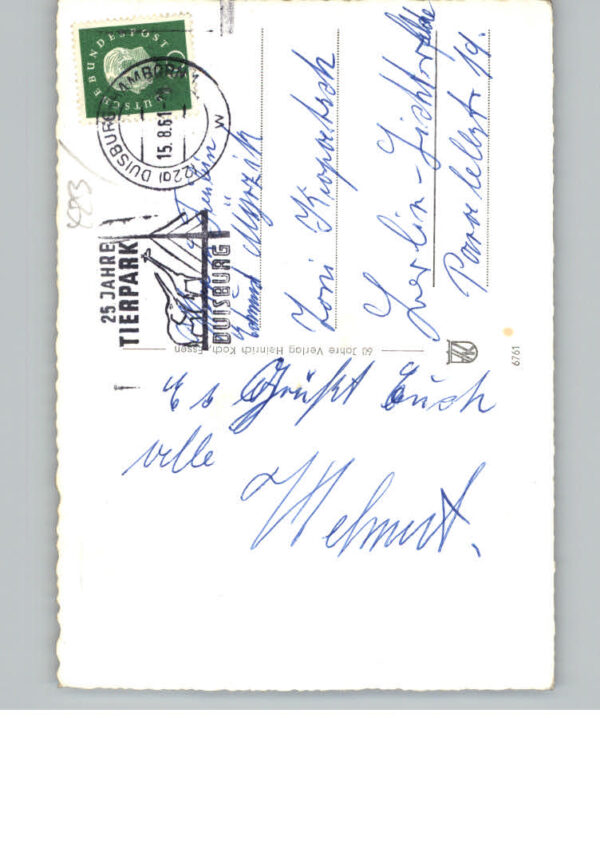 Es Grüßt Euch
alle
Helmut.
60 Jahre Verlag Heinrich Koch, Essen
6761
DEUTSCHE BUNDESPOST
(22a) DUISBURG-HAMBORN 1
15.8.61
w
25 JAHRE
TIERPARK
DUISBURG
Toni
Berlin-Lichterfelde
Parallelstr 19.